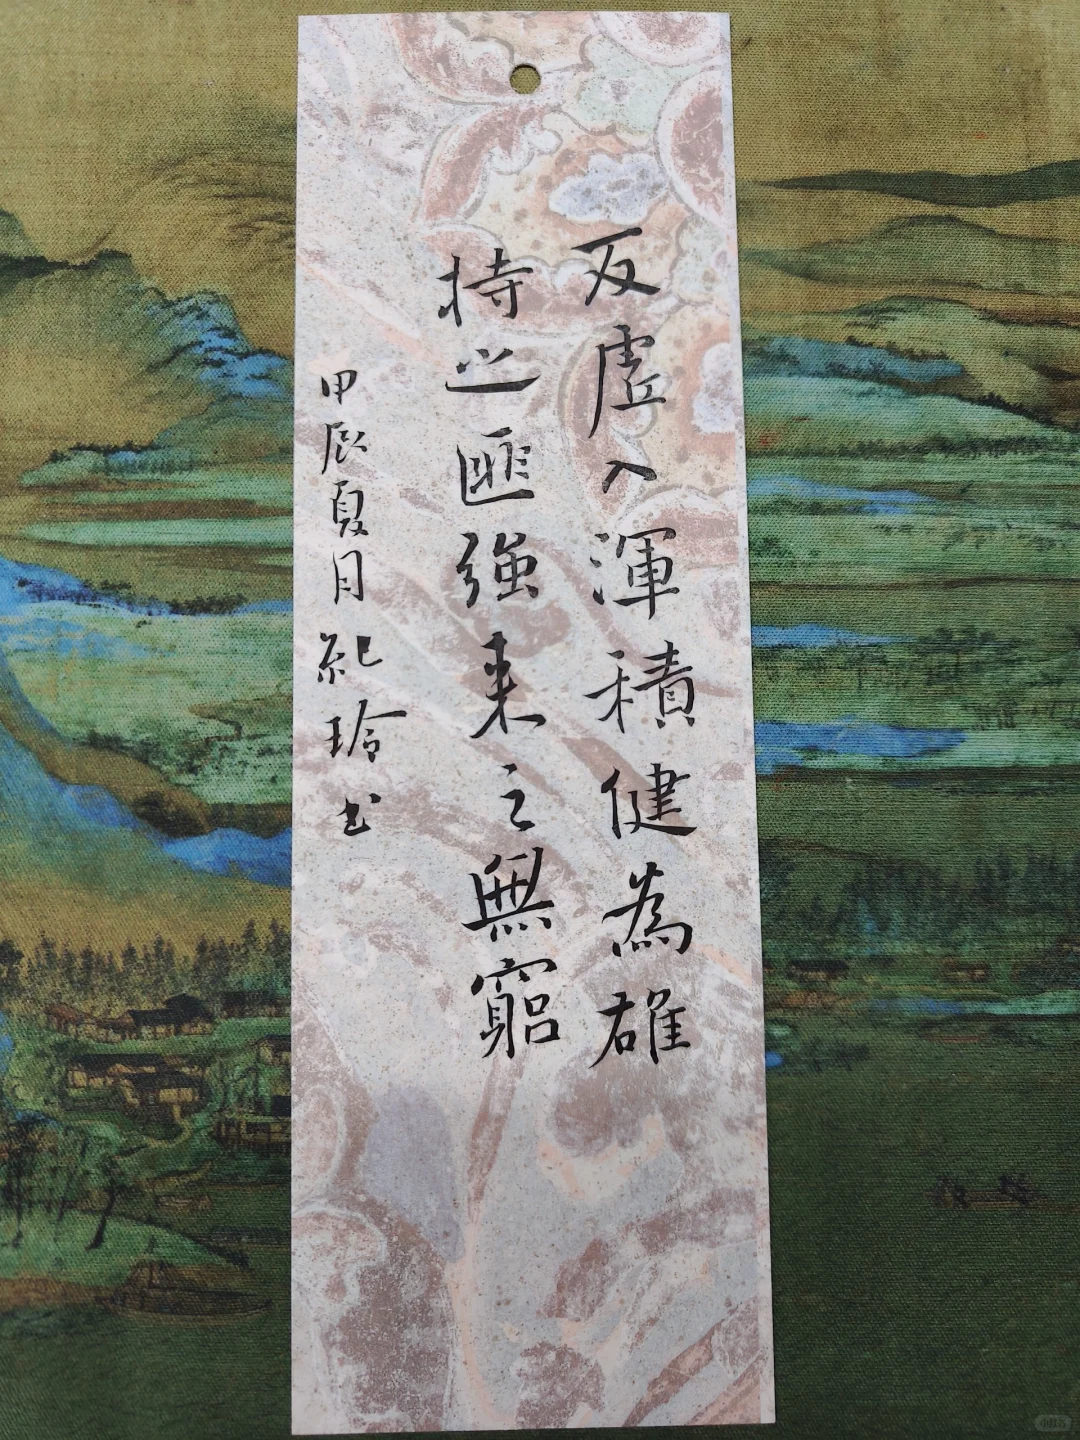 反虛入渾積健為雄
持之匪強来之無窮
甲辰夏月紀玲书